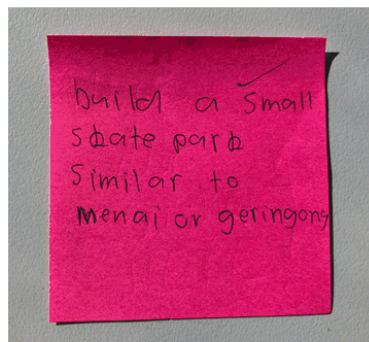 build a small
skate park
Similar to
Menai or geringong